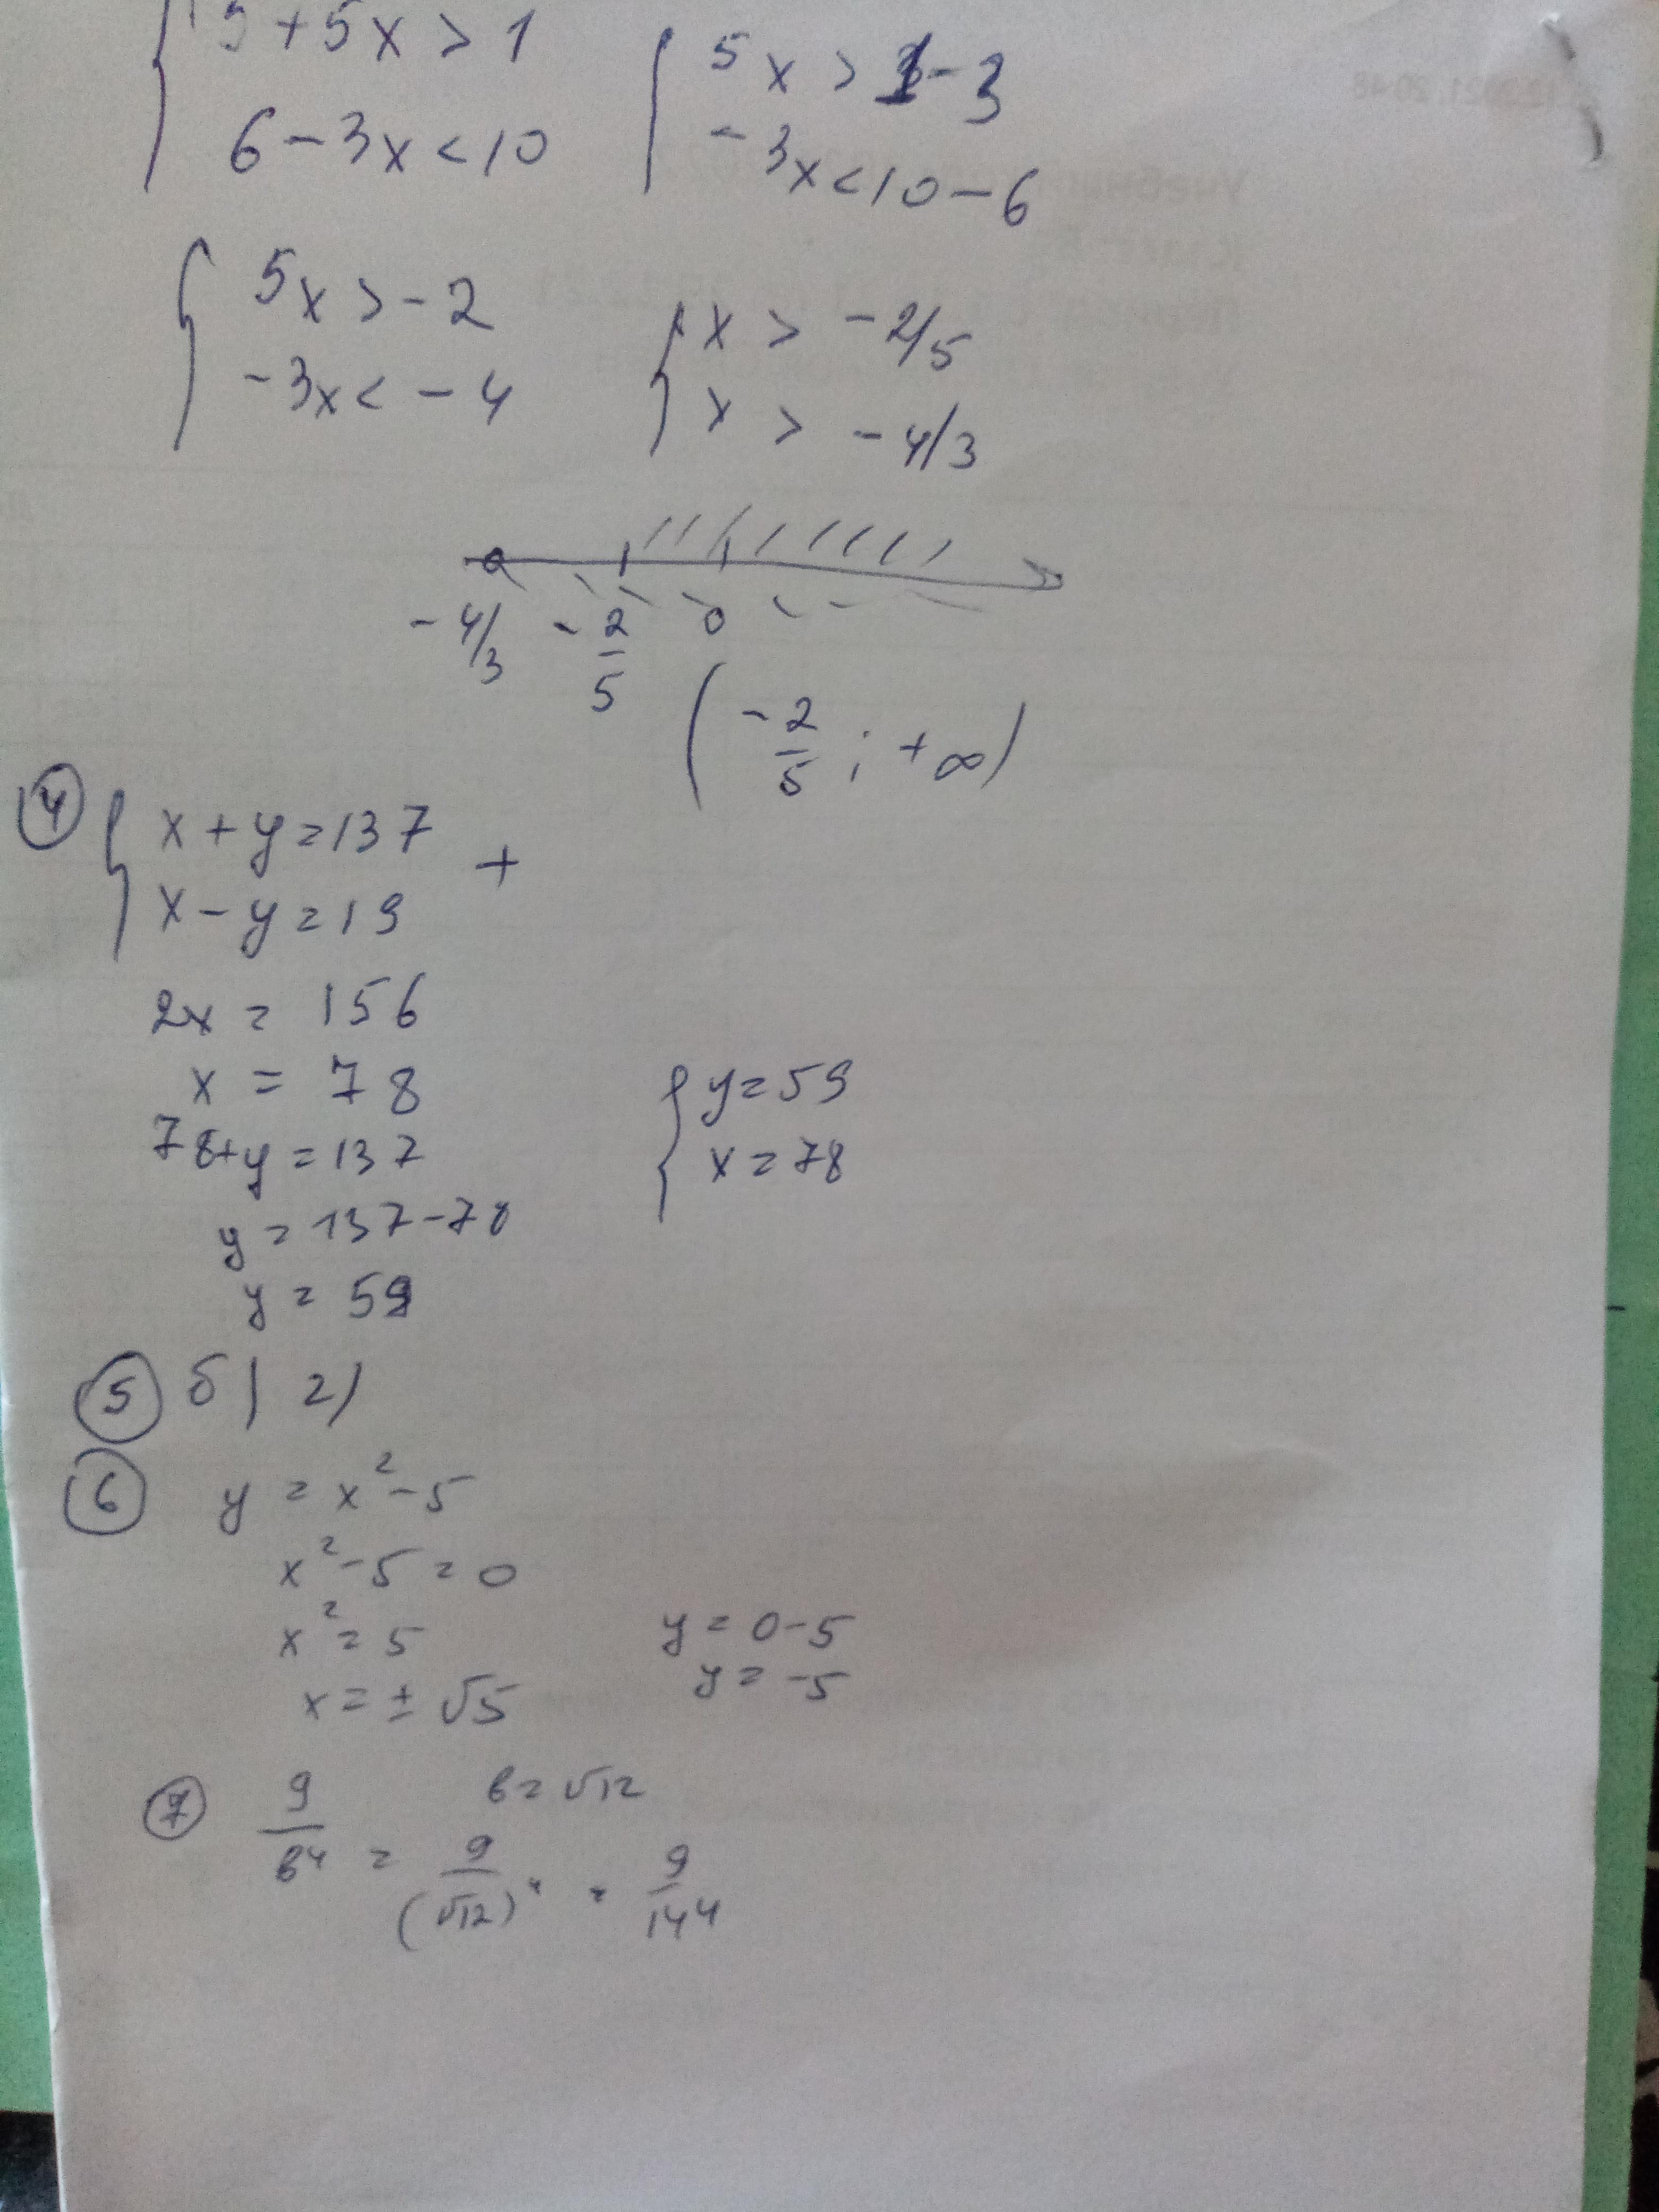 { 3 + 5x > 1
6 - 3x < 10
{ 5x > 1 - 3
- 3x < 10 - 6
{ 5x > - 2
- 3x < - 4
{ x > - 2/5
x > - 4/3
- 4/3 - 2/5 0
( -2/5 ; + ∞ )
④ { x + y = 137
x - y = 19
+
2x = 156
x = 78
78 + y = 137
y = 137 - 78
y = 59
{ y = 59
x = 78
⑤ б) г)
⑥ y = x² - 5
x² - 5 = 0
x² = 5
x = ± √5
y = 0 - 5
y = -5
⑦ 9/в⁴ = 9/(√12)⁴ = 9/144
в = √12